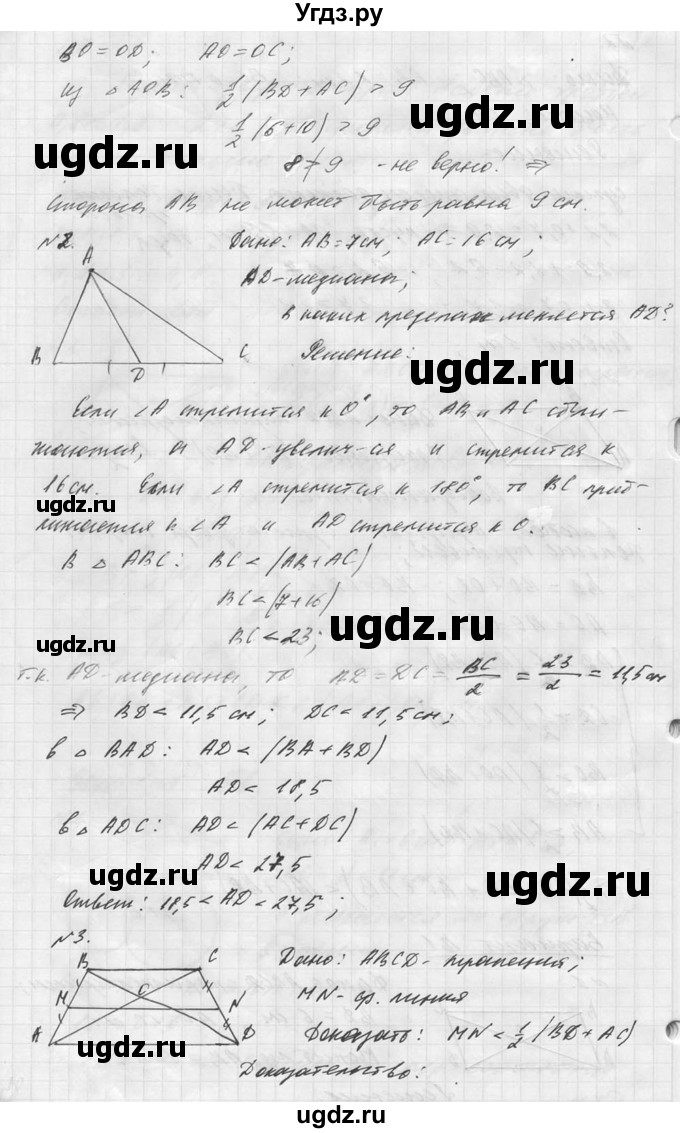 Угдз.ру
BO=OD; AO=OC;
из △AOB: 1/2(BD+AC) > 9
1/2(6+10) > 9
8 ≯ 9 - не верно! ⇒
Сторона AB не может быть равна 9 см.
№2.
Дано: AB=7см; AC=16см;
AD-медиана;
в каких пределах меняется AD?
Решение:
A
B
D
C
Если ∠A стремится к 0°, то AB и AC сбли-
жаются, а AD-увелич-ая и стремится к
16см. Если ∠A стремится к 180°, то BC приб-
лижается к ∠A и AD стремится к 0.
В △ABC: BC < (AB+AC)
BC < (7+16)
BC < 23;
т.к. AD-медиана, то BD = DC = BC/2 = 23/2 = 11,5 см
⇒ BD < 11,5 см; DC < 11,5 см;
в △BAD: AD < (BA+BD)
AD < 18,5
в △ADC: AD < (AC+DC)
AD < 27,5
Ответ: 18,5 < AD < 27,5;
№3.
Дано: ABCD-трапеция;
MN-ср. линия
Доказать: MN < 1/2(BD+AC)
Доказательство:
B
C
M
C
N
A
D
ugdz.ru
ugdz.ru
ugdz.ru
ugdz.ru
ugdz.ru
ugdz.ru
ugdz.ru
ugdz.ru
ugdz.ru
ugdz.ru
ugdz.ru
ugdz.ru
ugdz.ru
ugdz.ru